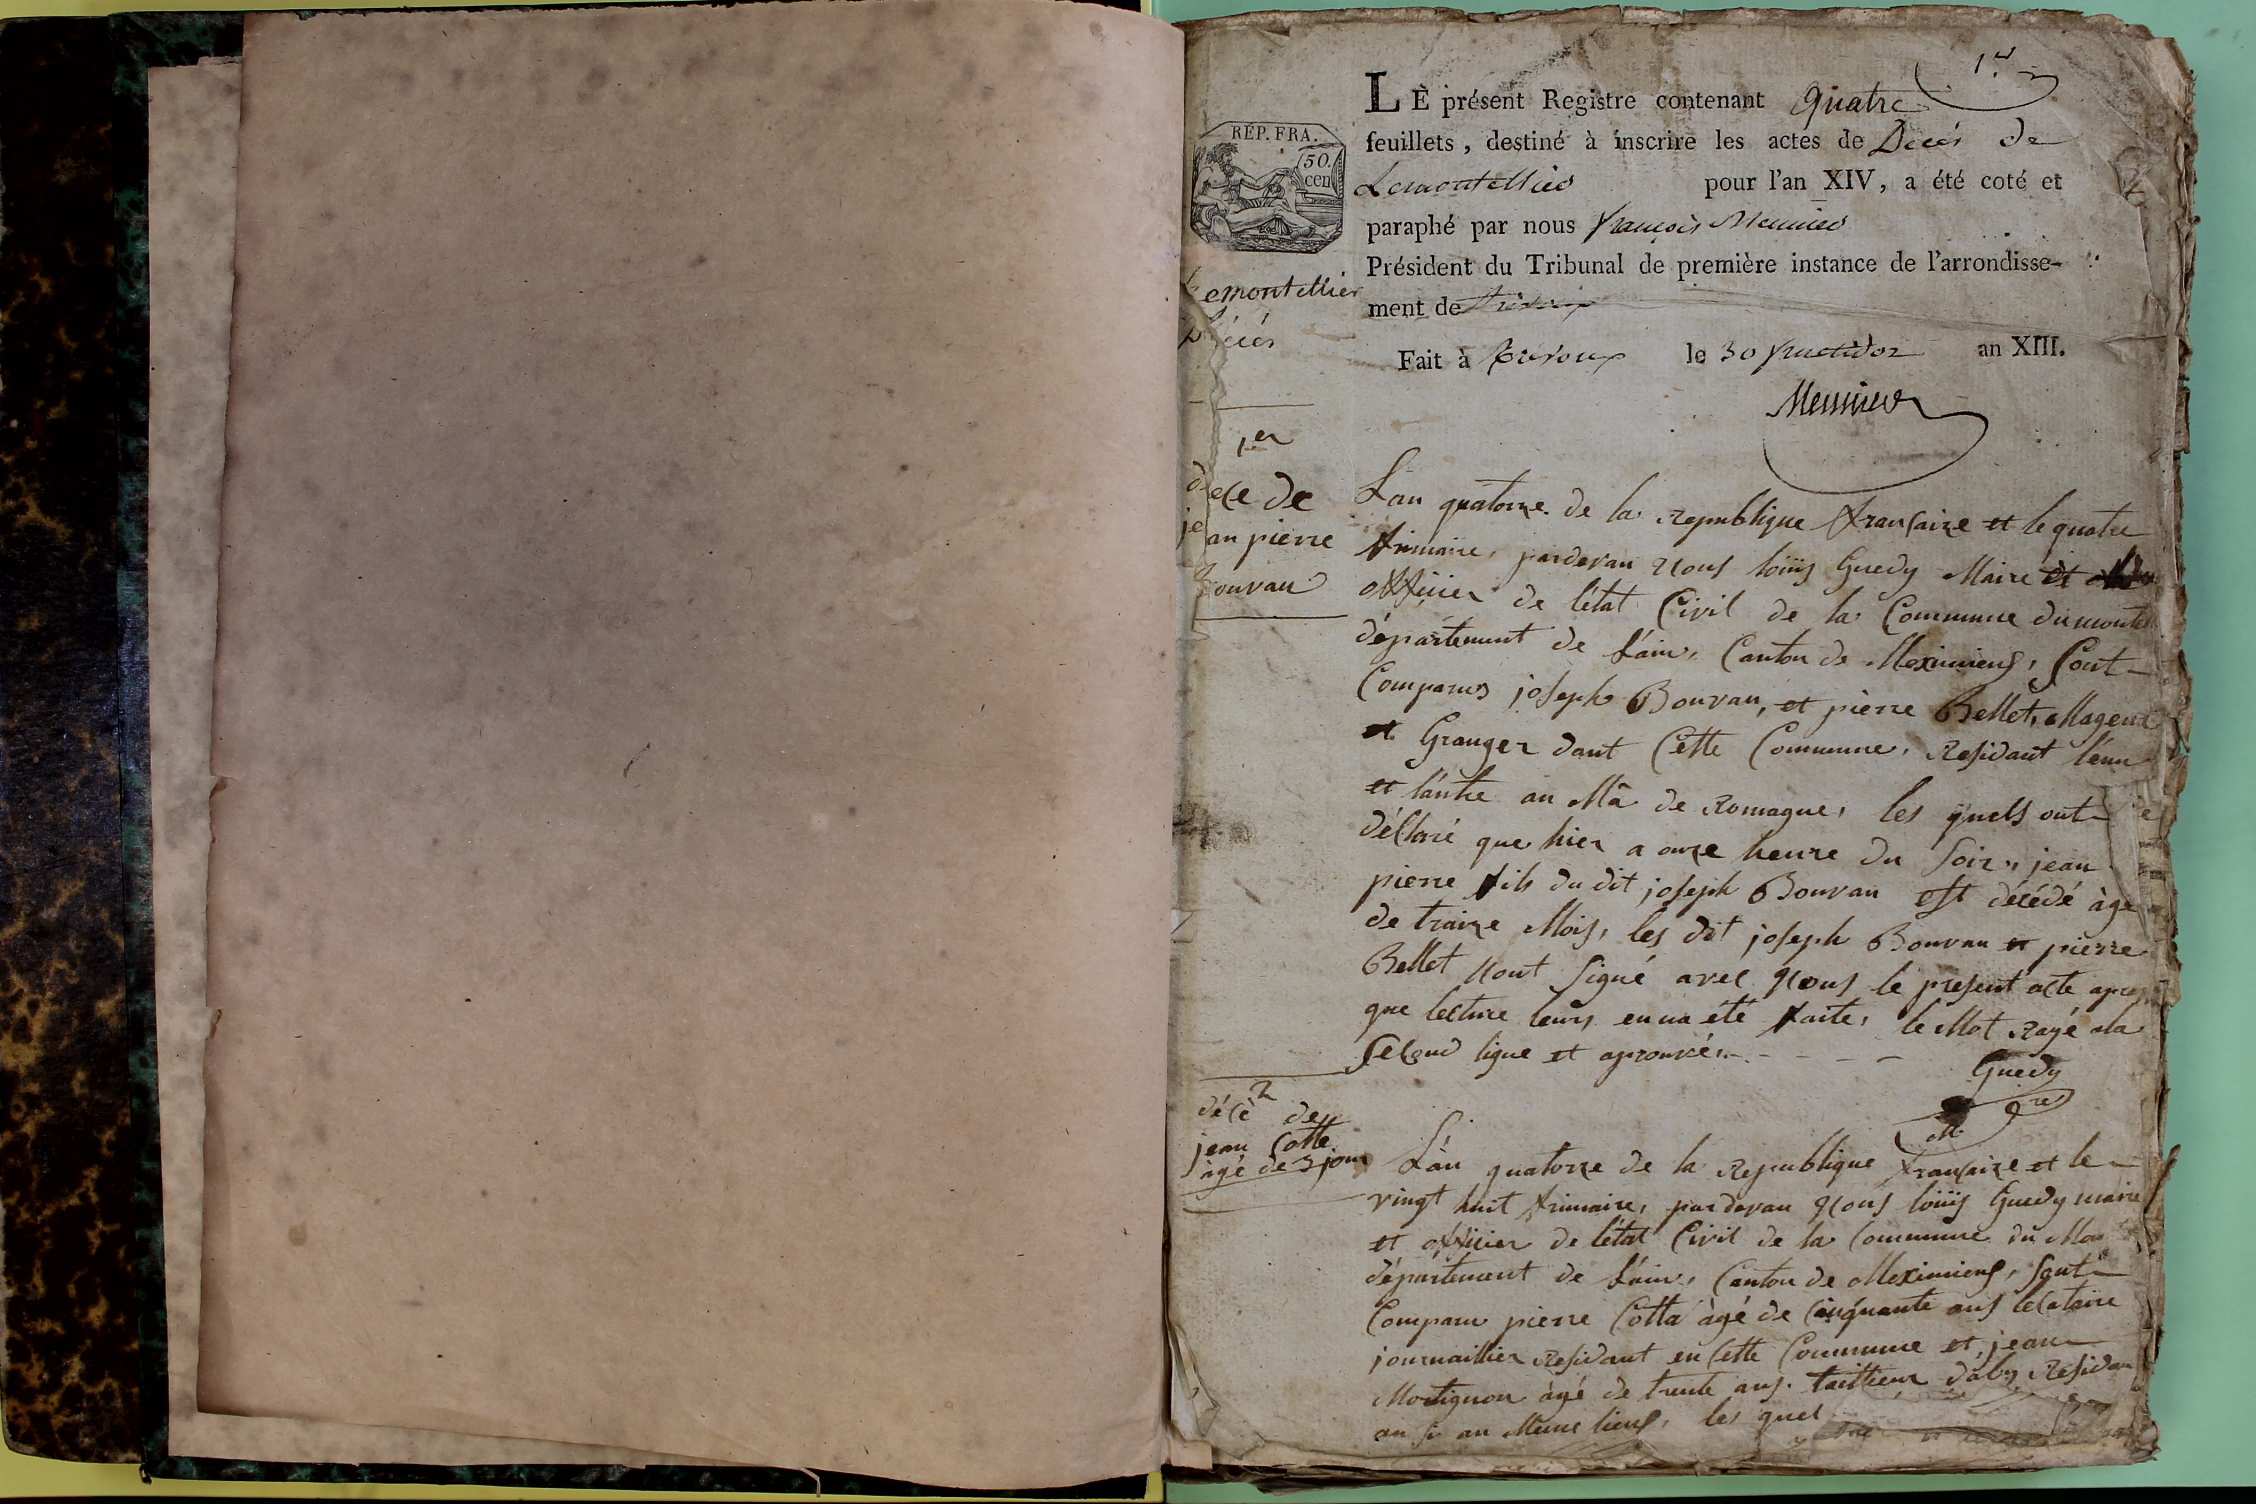 1er
LE présent Registre contenant quatre
feuillets, destiné à inscrire les actes de Décés de
Lemontellier pour l'an XIV, a été coté et
paraphé par nous françois Meunier
Président du Tribunal de première instance de l'arrondisse-
ment de trevoux
Fait à trevoux le 30 fructidor an XIII.
Meunier
RÉP. FRA.
50.
cen
Lemontellier
Décés
1er
déce de
jean pierre
Bouvan
L'an quatorze de la republique francaize et le quatre
frimaire, pardevan nous loüis Guedy Maire et
officier de l'état Civil de la Commune dumontel
département de L'ain, Canton de Meximieux, Sont
Comparus joseph Bouvan, et pierre Bellet, Mageur
et Granger dant Cette Commune, Residant l'enn
et l'autre au Mâ de Romague, les quels ont
déClaré que hier a onze heure du Soir, jean
pierre fils du dit joseph Bouvan est décédé àgé
de traize Mois, les dit joseph Bouvan et pierre
Bellet nont Signé avec nous le present acte apres
que lecture leurs en na été faite, le Mot Rayé ala
SeCond ligne et aprouvé.
Guedy
Mre
2
déCè de
jean Cotte
àgé de 3 jour
L'àn quatorze de la Republique francaize et le
vingt huit frimaire, pardevan nous loüis Guedy maire
et officier de l'état Civil de la Commune du Mon
département de L'ain, Canton de Meximieux, Sont
Comparu pierre Cotta àgé de Cinquante ans leCataire
journaillier Residant en Cette Commune et, jean
Montignon àgé de trente ans. taillieur daby Residan
au Si au Meme lieux, les quel